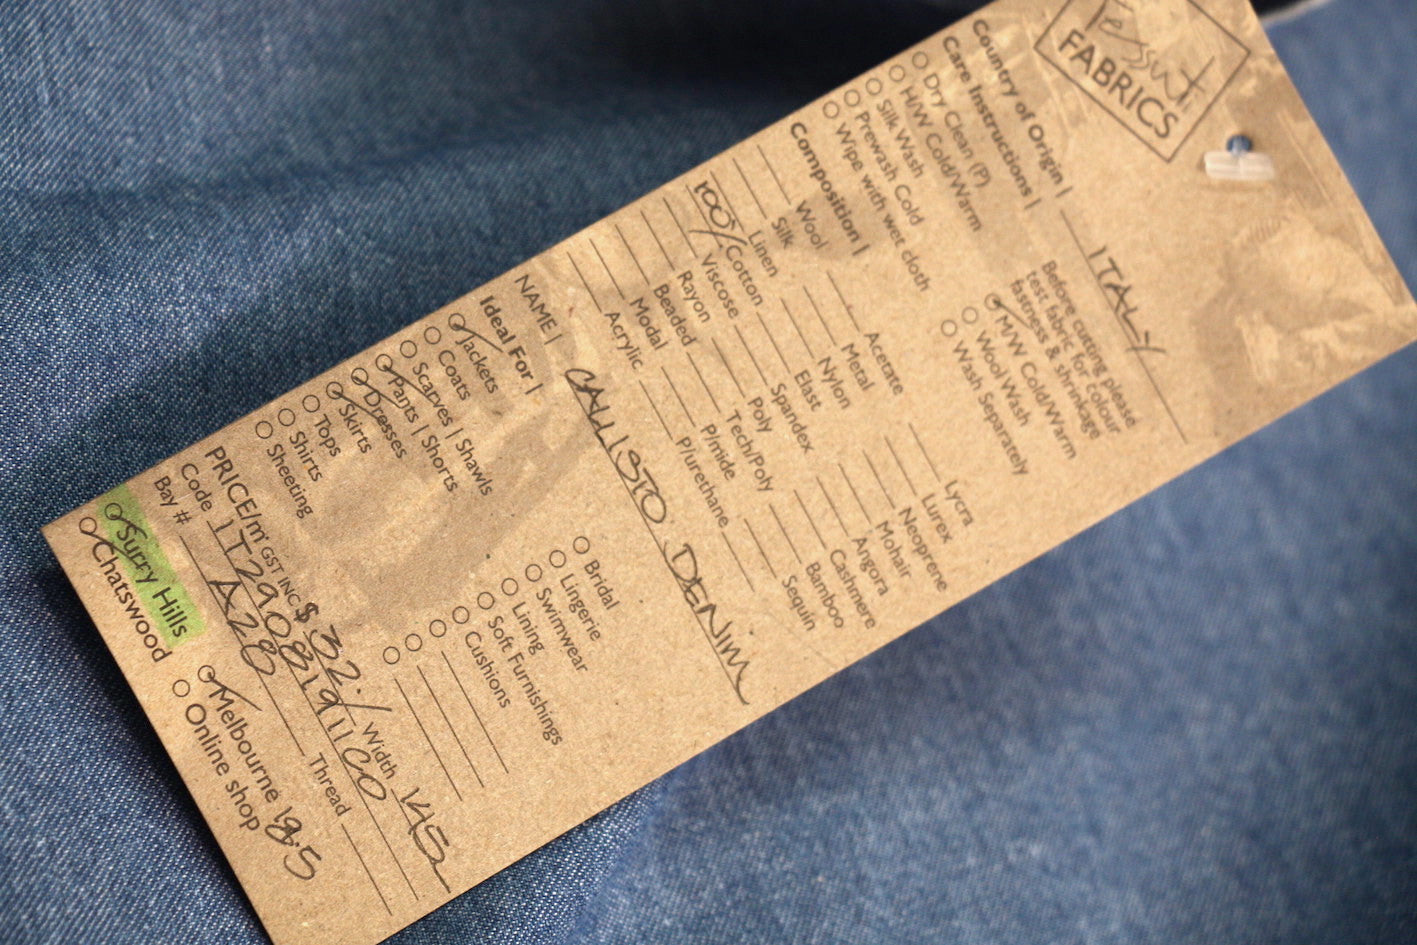 Tessuti
FABRICS
Country of Origin | ITALY
Care Instructions |
Dry Clean (P)
H/W Cold/Warm
Silk Wash
Prewash Cold
Wipe with wet cloth
Before cutting please
test fabric for colour
fastness & shrinkage
M/W Cold/Warm
Wool Wash
Wash Separately
Composition |
Wool Acetate Lycra
Silk Metal Lurex
Linen Nylon Neoprene
100% Cotton Elast Mohair
Viscose Spandex Angora
Rayon Poly Cashmere
Beaded Tech/Poly Bamboo
Modal P/mide Sequin
Acrylic P/urethane
NAME | CALLISTO DENIM
Ideal For |
Jackets
Coats
Scarves | Shawls
Pants | Shorts
Dresses
Skirts
Tops
Shirts
Sheeting
Bridal
Lingerie
Swimwear
Lining
Soft Furnishings
Cushions
PRICE/m GST INC $ 32./ Width 145
Code 1T29081911CO
Bay # A28 Thread
Surry Hills Melbourne 19.5
Chatswood Online shop